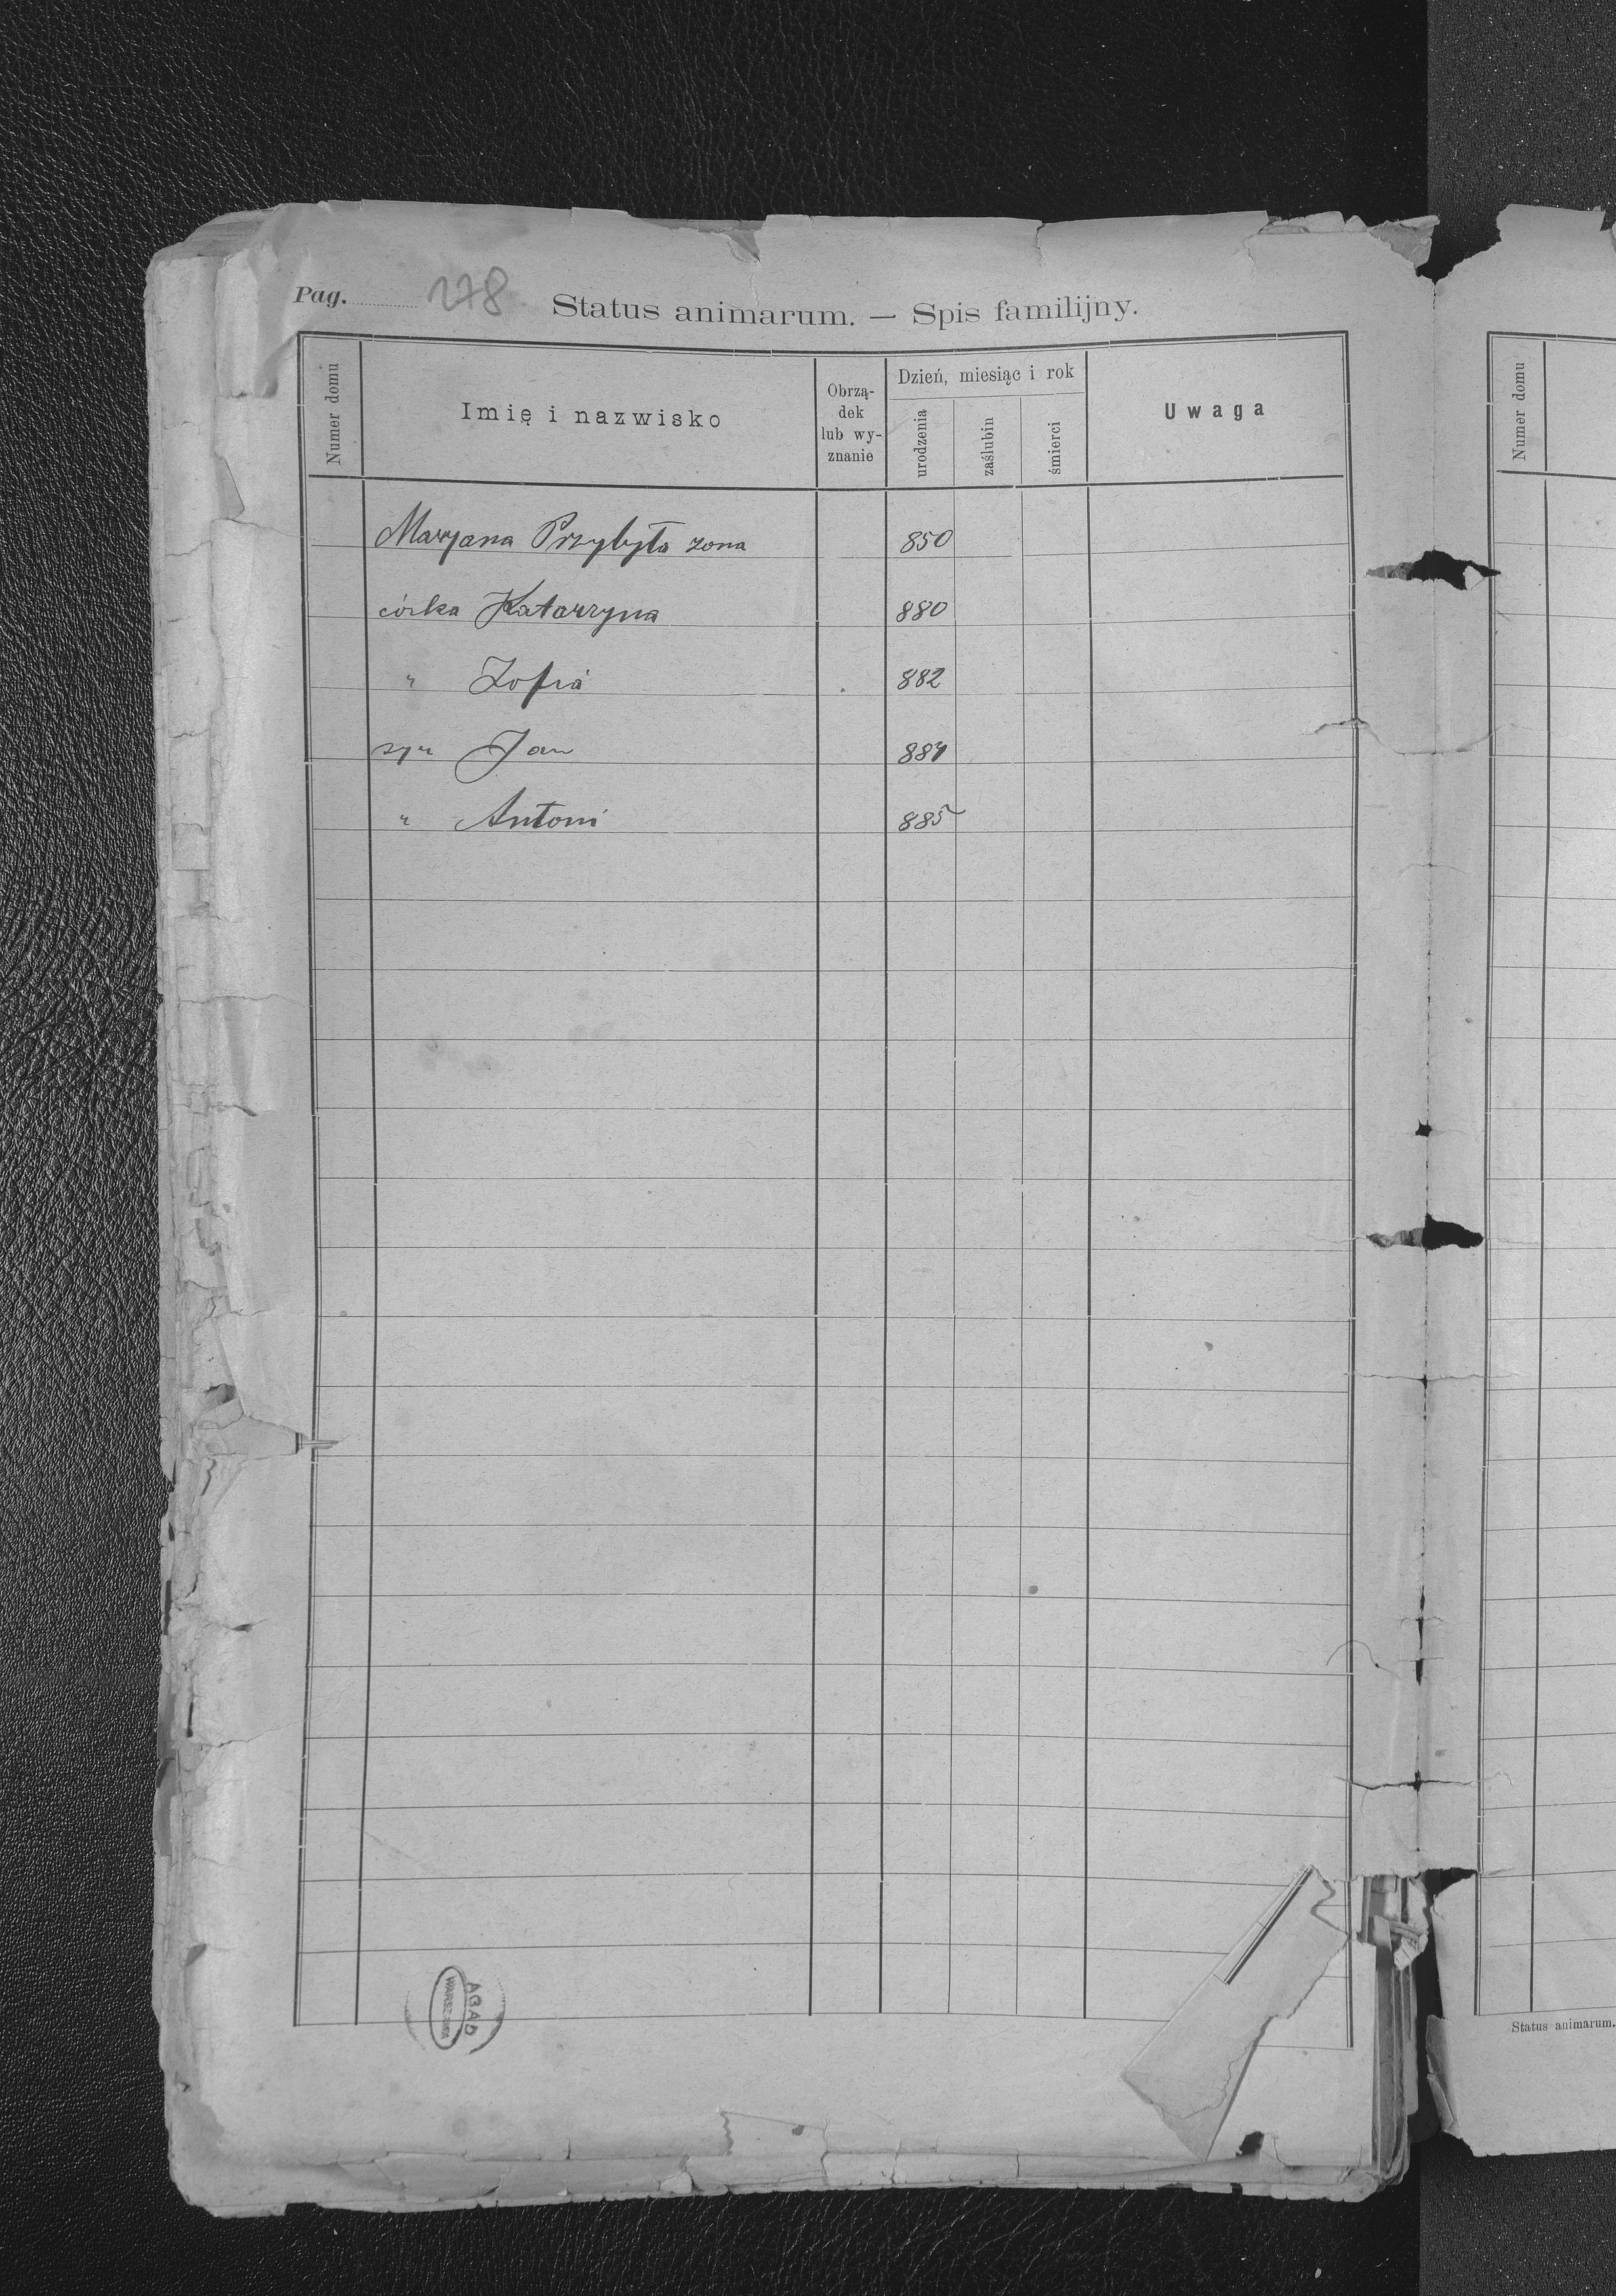 Pag. 278
Status animarum. — Spis familijny.
Numer domu
Imię i nazwisko
Obrzą-
dek
lub wy-
znanie
Dzień, miesiąc i rok
urodzenia
zaślubin
śmierci
Uwaga
Maryana Przybyła zona 850
córka Katarzyna 880
" Zofia 882
syn Jan 884
" Antoni 885
AGAD
WARSZAWA
Numer domu
Status animarum.